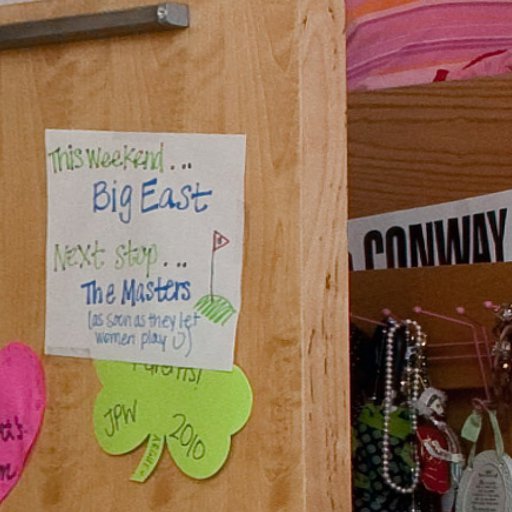 This Weekend...
Big East
Next stop...
The Masters
(as soon as they let
women play :)
Parents!
JPW
2010
CONWAY